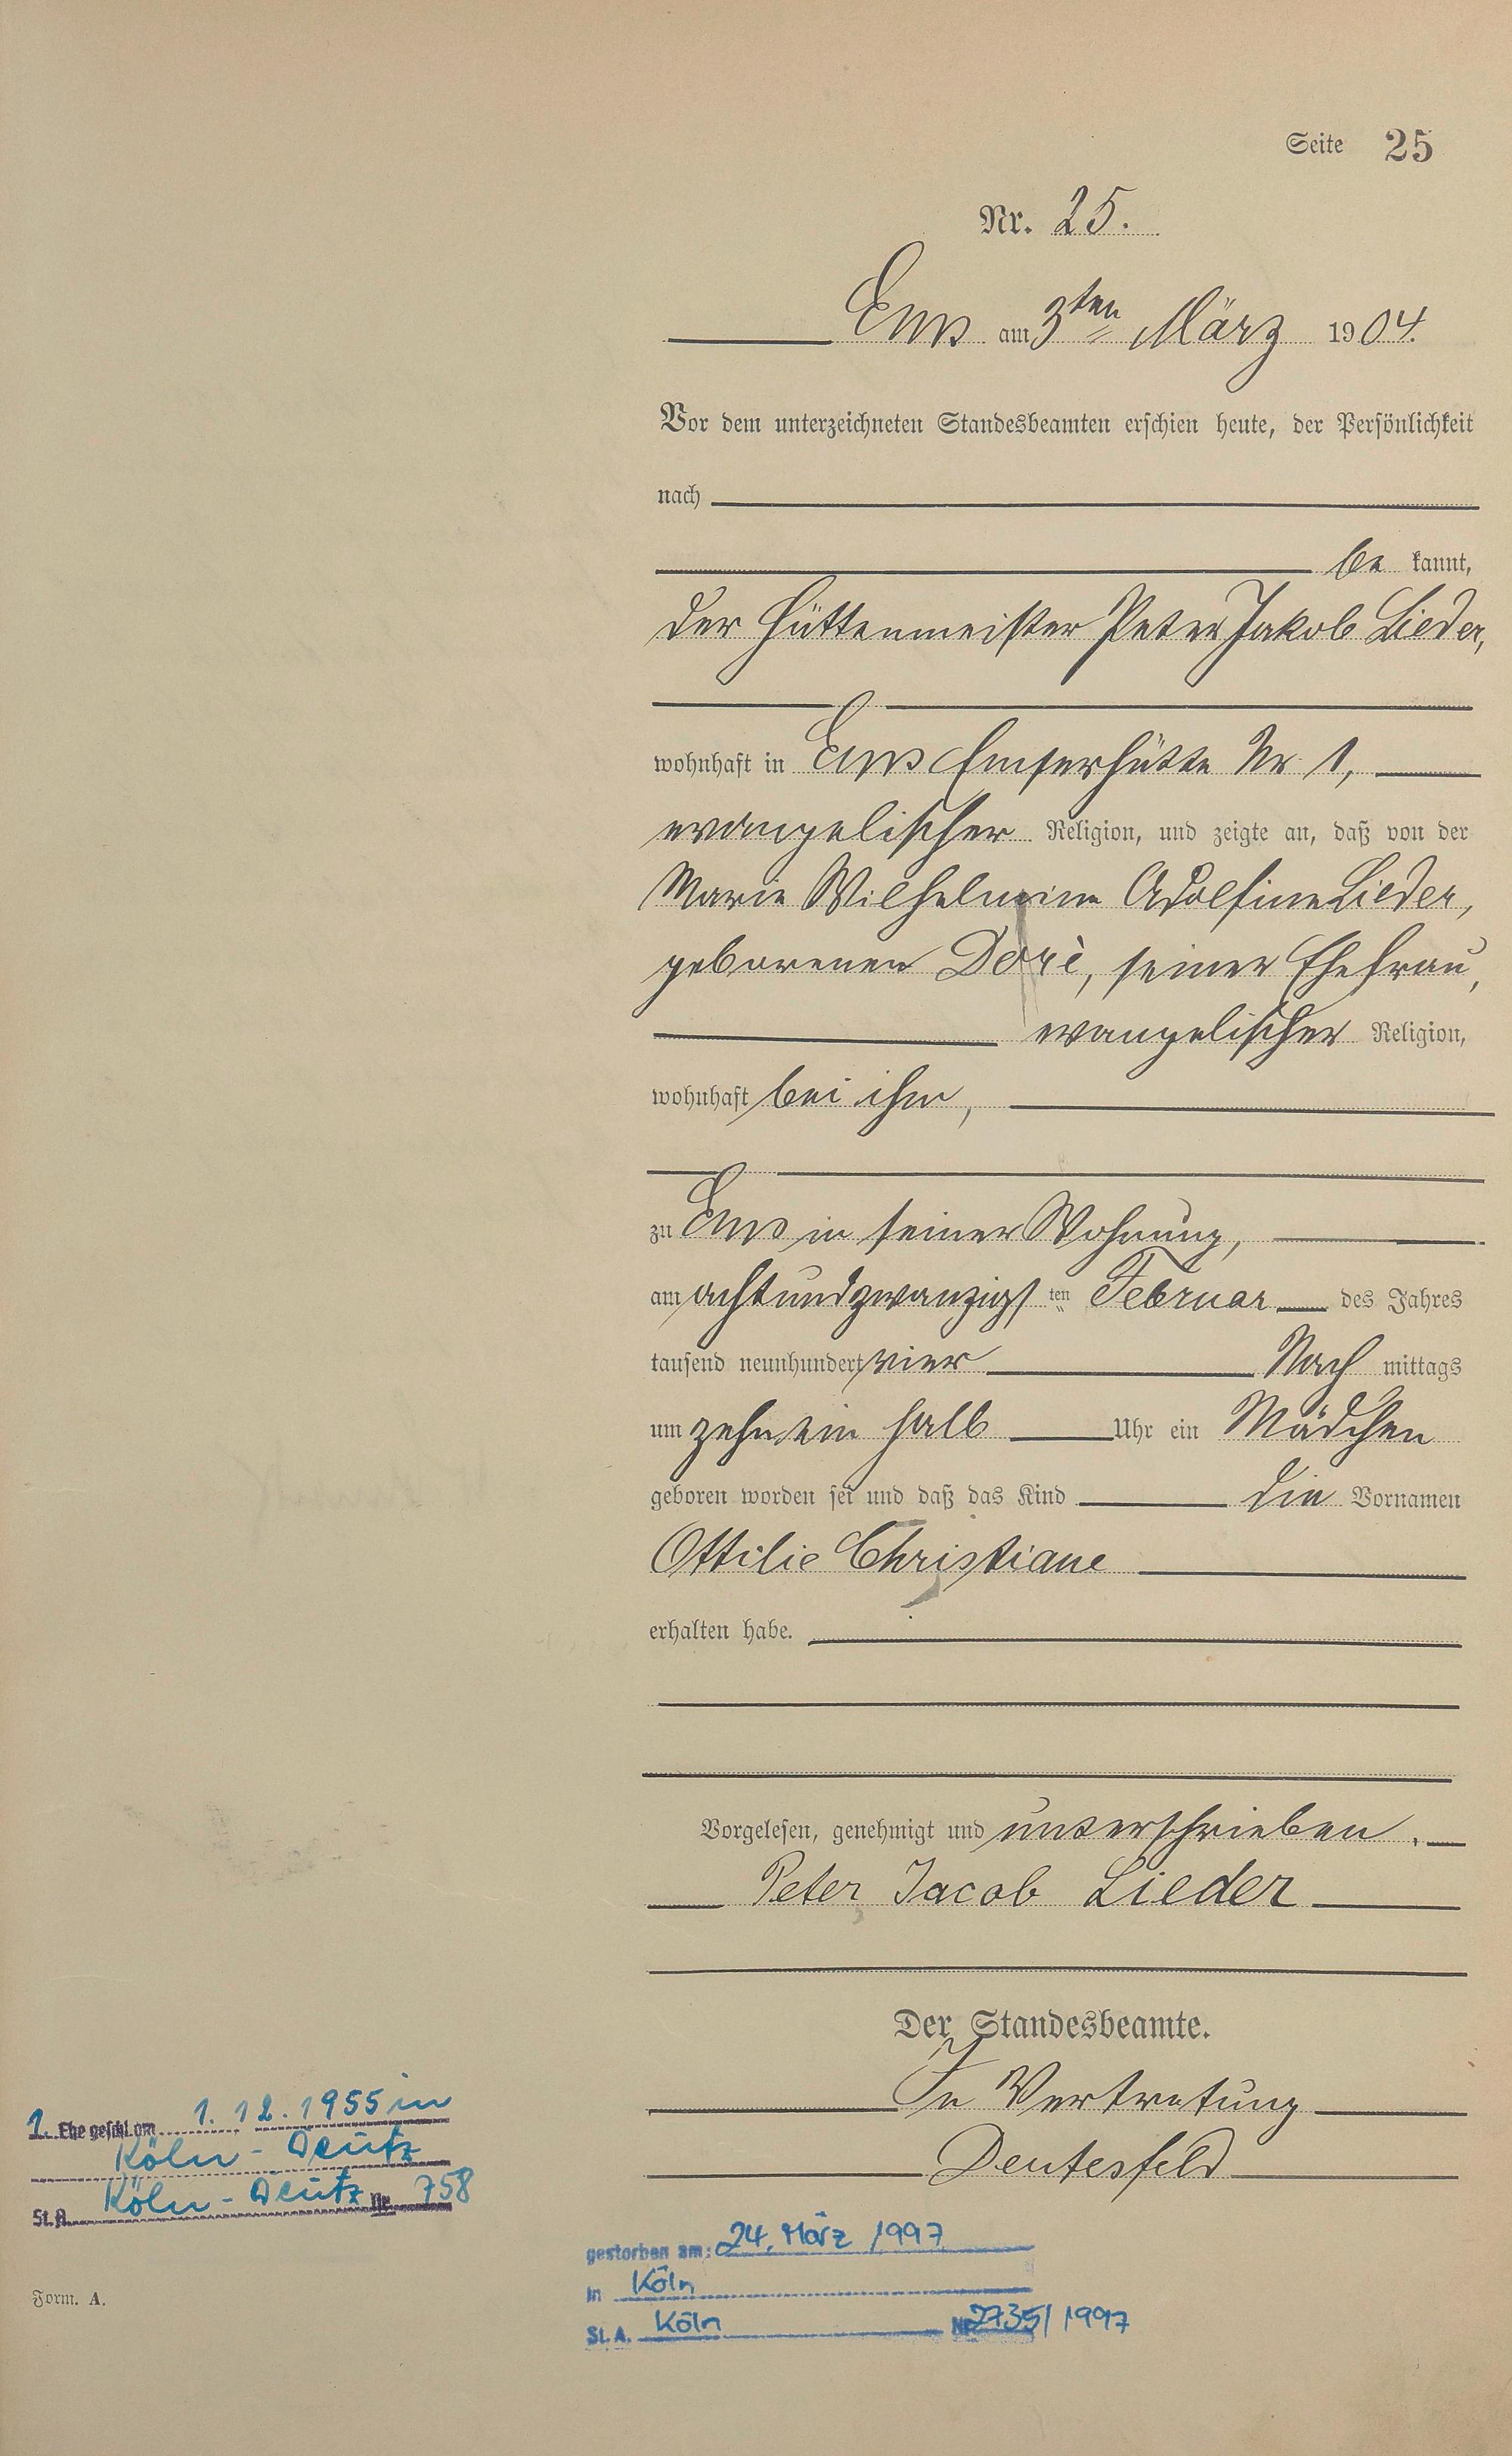 Seite 25
Nr. 25.
Ems am 3ten März 1904.
Vor dem unterzeichneten Standesbeamten erschien heute, der Persönlichkeit
nach
be kannt,
der Hüttenmeister Peter Jakob Lieder,
wohnhaft in Ems Emserhütte Nr 1,
evangelischer Religion, und zeigte an, daß von der
Marie Wilhelmine Adolfine Lieder,
geborenen Doré, seiner Ehefrau,
evangelischer Religion,
wohnhaft bei ihm,
zu Ems in seiner Wohnung,
am achtundzwanzigsten Februar des Jahres
tausend neunhundert vier Nach mittags
um zehn ein halb Uhr ein Mädchen
geboren worden sei und daß das Kind die Vornamen
Ottilie Christiane
erhalten habe.
Vorgelesen, genehmigt und unterschrieben.
Peter Jacob Lieder
Der Standesbeamte.
In Vertretung
Deutesfeld
1. Ehe geschl. am 1.12.1955 in
Köln-Deutz
St.A. Köln-Deutz Nr. 758
gestorben am: 24. März 1997
in Köln
St.A. Köln Nr. 2735/1997
Form. A.